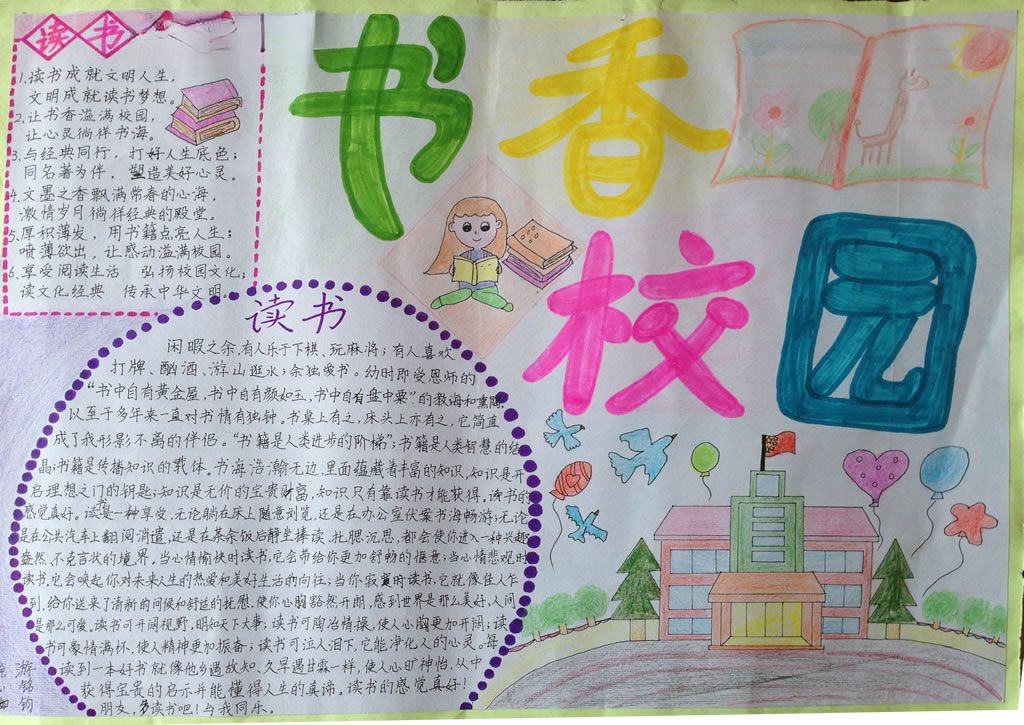 读书
1.读书成就文明人生，
文明成就读书梦想。
2.让书香溢满校园，
让心灵徜徉书海。
3.与经典同行，打好人生底色；
同名著为伴，塑造美好心灵。
4.文墨之香飘满常春的心海，
激情岁月徜徉经典的殿堂。
5.厚积薄发，用书籍点亮人生；
喷薄欲出，让感动溢满校园。
6.享受阅读生活 弘扬校园文化；
读文化经典 传承中华文明
书香
校园
读书
闲暇之余,有人乐于下棋、玩麻将；有人喜欢
打牌、酗酒、游山逛水；余独爱书。幼时即受恩师的
“书中自有黄金屋，书中自有颜如玉，书中自有盘中粟”的教诲和熏陶，
以至于多年来一直对书情有独钟。书桌上有之，床头上亦有之，它简直
成了我形影不离的伴侣。“书籍是人类进步的阶梯”；书籍是人类智慧的结
晶；书籍是传播知识的载体。书海浩瀚无边，里面蕴藏着丰富的知识，知识是开
启理想之门的钥匙；知识是无价的宝贵财富，知识只有靠读书才能获得。读书的
感觉真好。读书是一种享受，无论躺在床上随意浏览，还是在办公室伏案书海畅游；无论
是在公共汽车上翻阅消遣，还是在茶余饭后静坐捧读、托腮沉思，都会使你进入一种兴趣
盎然、不克言状的境界，当心情愉快时读书，它会带给你更加舒畅的惬意；当心情悲观时
读书，它会唤起你对未来人生的热爱和美好生活的向往；当你寂寞时读书，它就像佳人乍
到，给你送来了清新的问候和舒适的抚慰，使你心胸豁然开朗，感到世界是那么美好，人间
是那么可爱。读书可开阔视野，明知天下大事；读书可陶冶情操，使人心胸更加开阔；读
书可豪情满怀，使人精神更加振奋；读书可泣人泪下，它能净化人的心灵。每
读到一本好书就像他乡遇故知、久旱遇甘霖一样，使人心旷神怡，从中
获得宝贵的启示并能懂得人生的真谛。读书的感觉真好！
朋友，多读书吧！与我同乐。
游铭钧